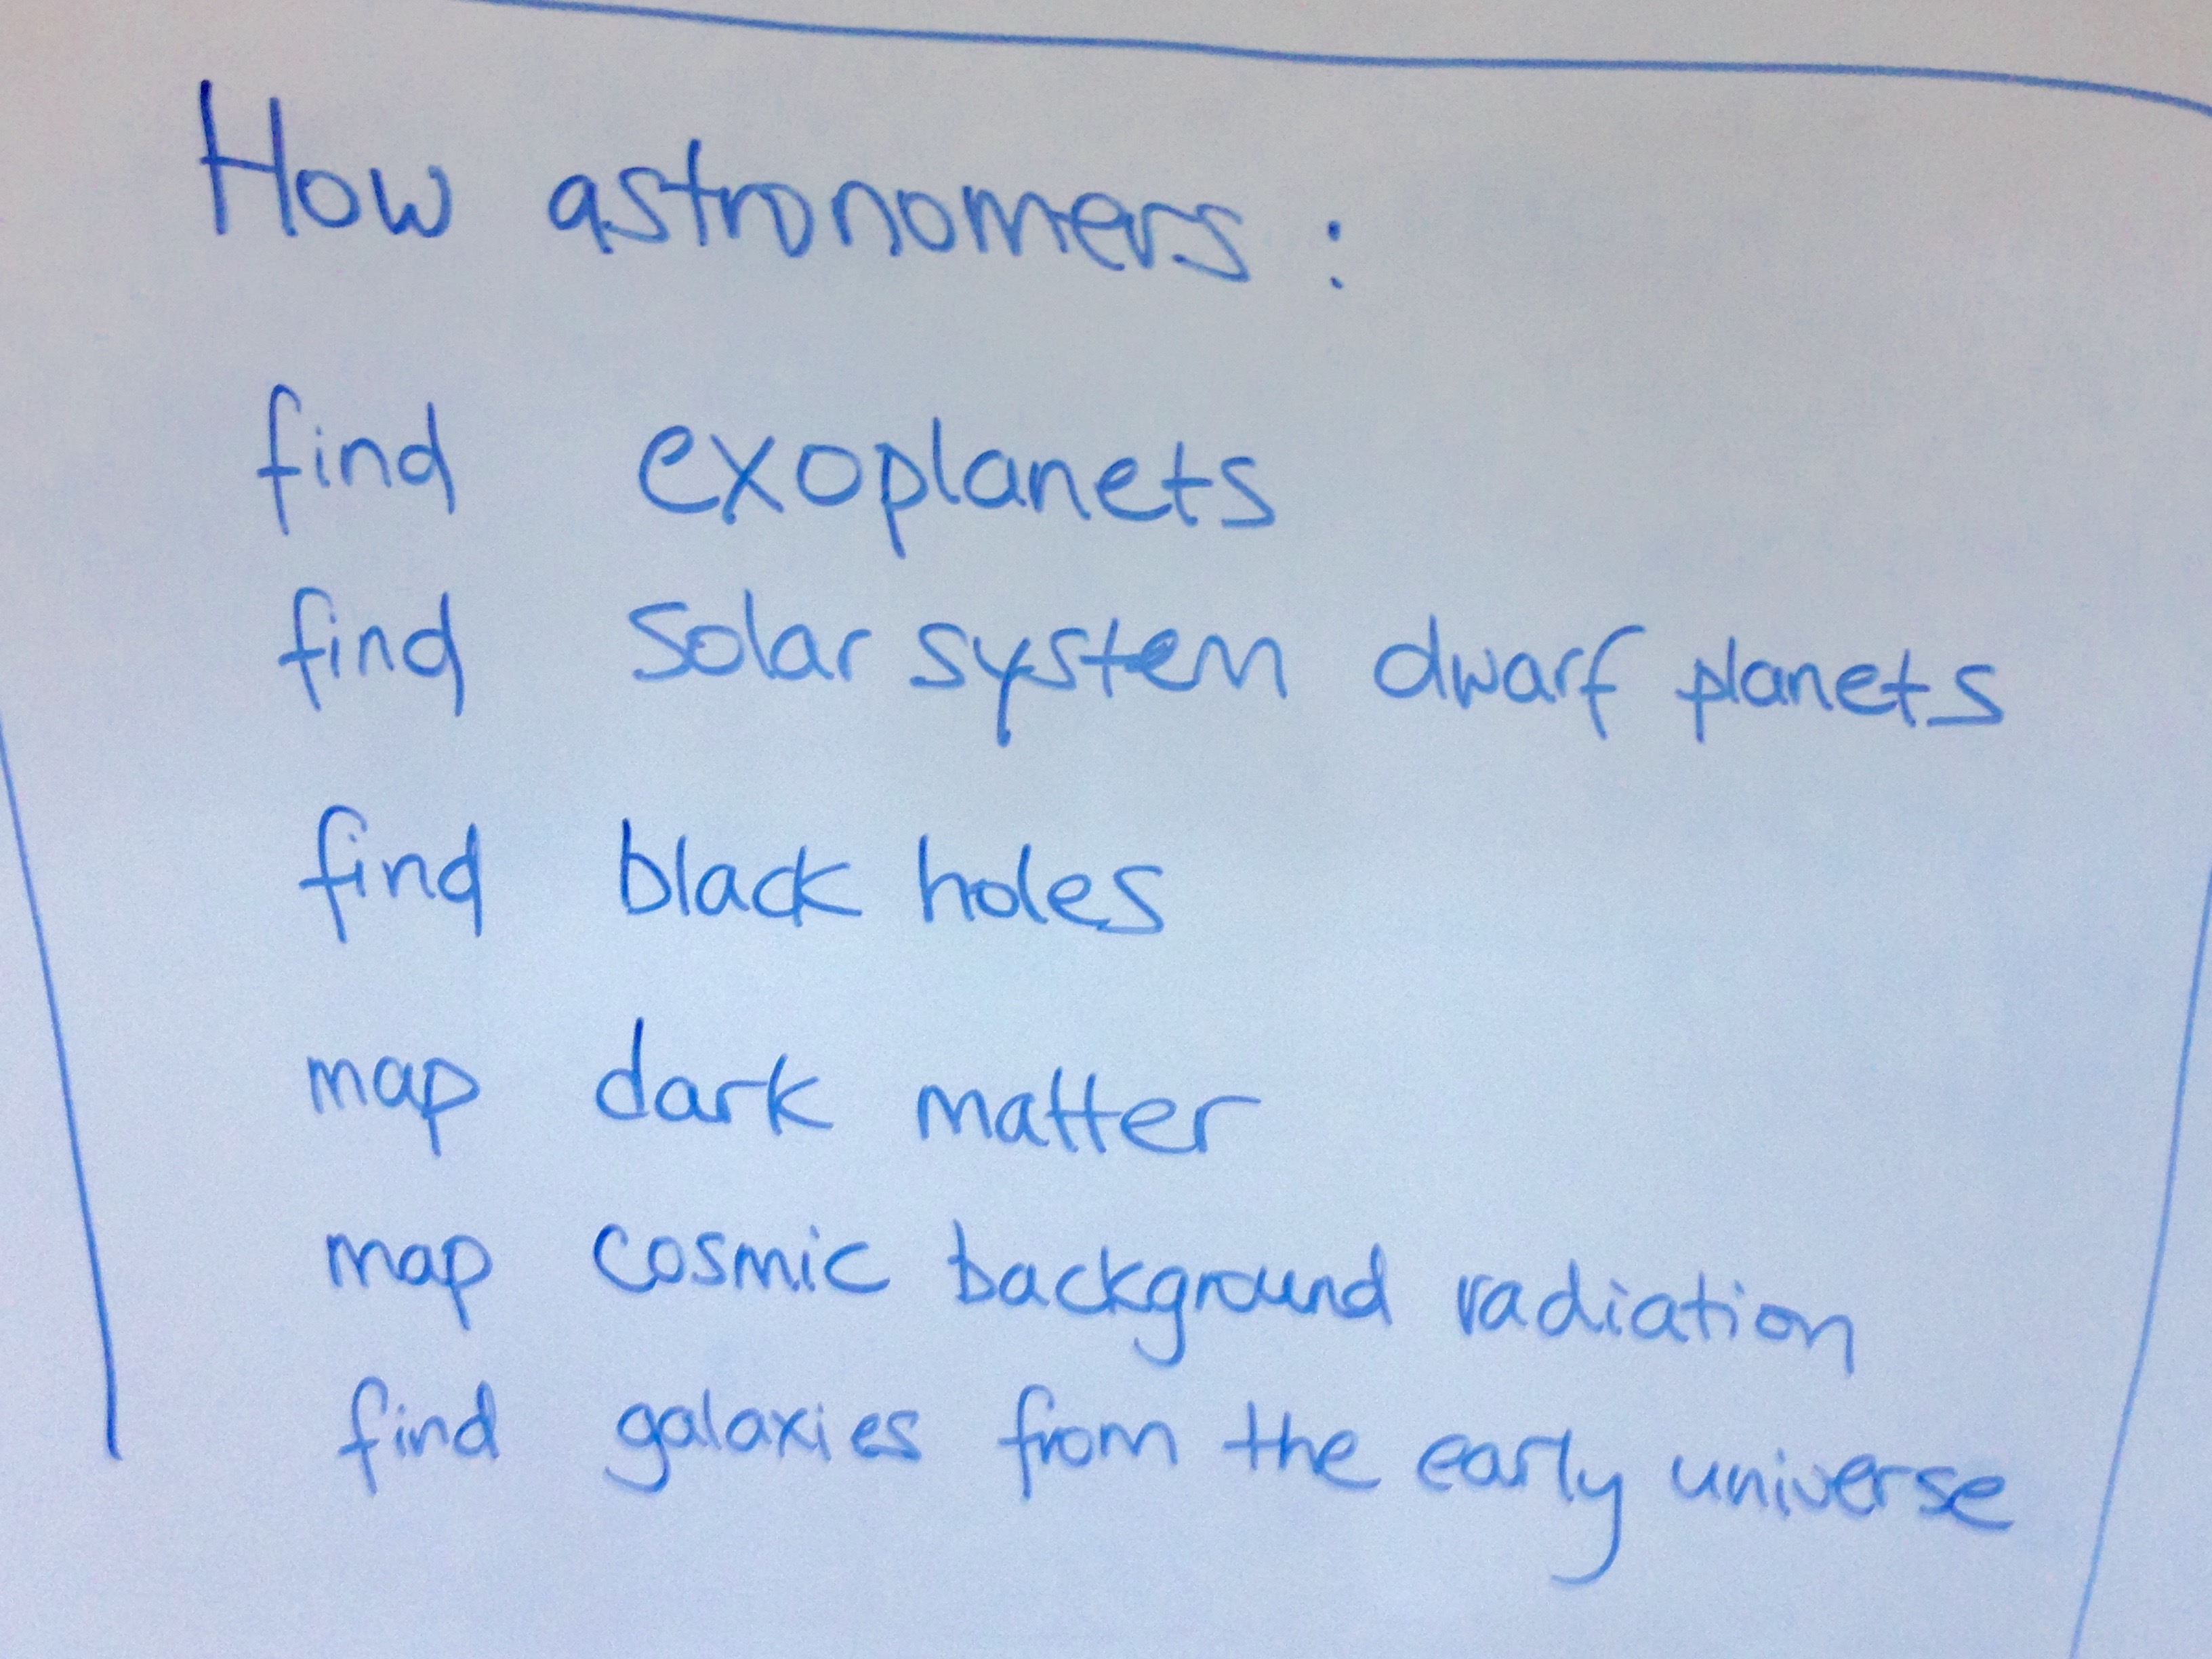 How astronomers :
find exoplanets
find solar system dwarf planets
find black holes
map dark matter
map cosmic background radiation
find galaxies from the early universe